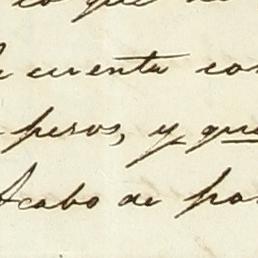 que
cuenta con
pesos, y que
Acabo de pa